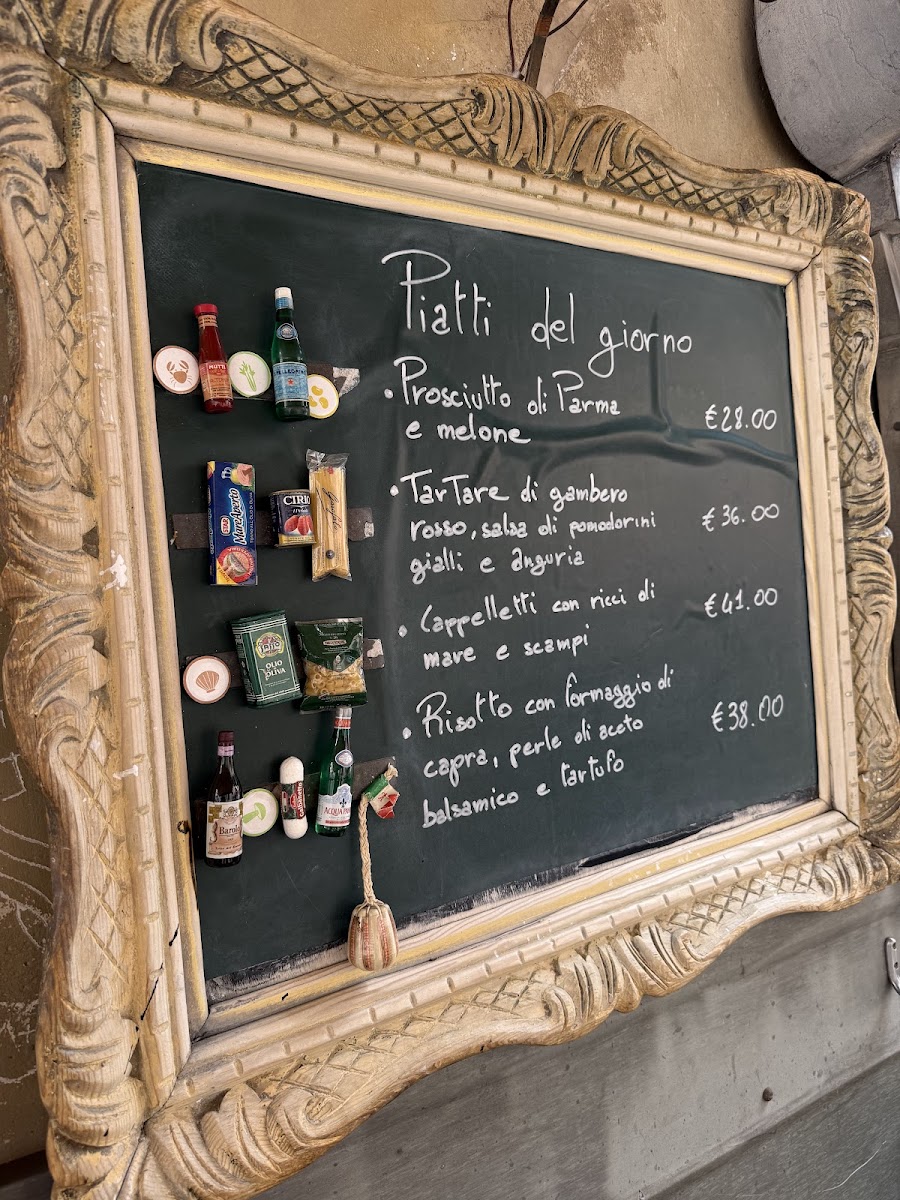 Piatti del giorno
• Prosciutto di Parma
e melone
€28.00
• Tartare di gambero
rosso, salsa di pomodorini
gialli e anguria
€36.00
• Cappelletti con ricci di
mare e scampi
€41.00
• Risotto con formaggio di
capra, perle di aceto
balsamico e tartufo
€38.00
MUTTI
PELLEGRINO
STAR
MareAperto
CIRIO
OLIO
DI OLIVA
Barolo
ACQUA PANNA